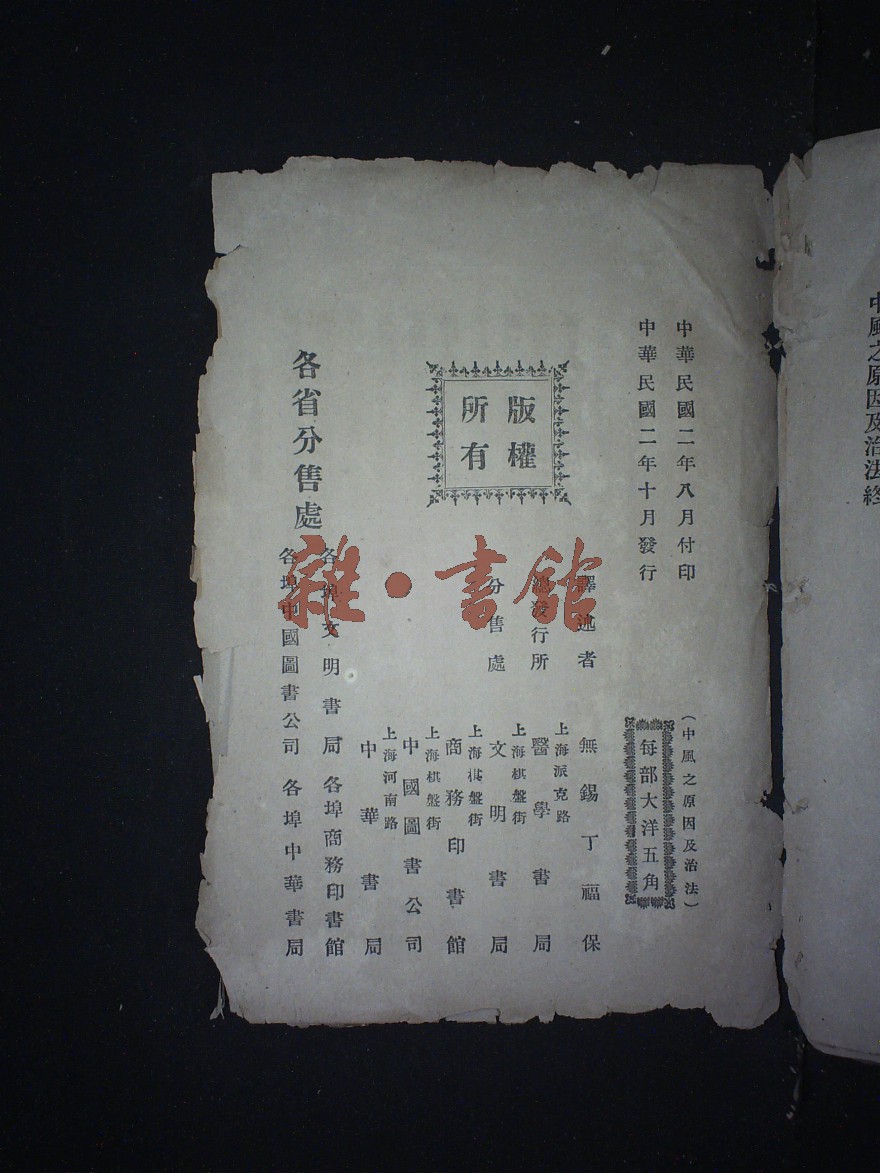 中風之原因及治法終
中華民國二年八月付印
中華民國二年十月發行
(中風之原因及治法)
每部大洋五角
版權
所有
譯述者 無錫丁福保
總發行所 上海派克路 醫學書局
分售處 上海棋盤街 文明書局
上海棋盤街 商務印書館
上海棋盤街 中國圖書公司
上海河南路 中華書局
各省分售處
各埠文明書局 各埠商務印書館
各埠中國圖書公司 各埠中華書局
雜·書館